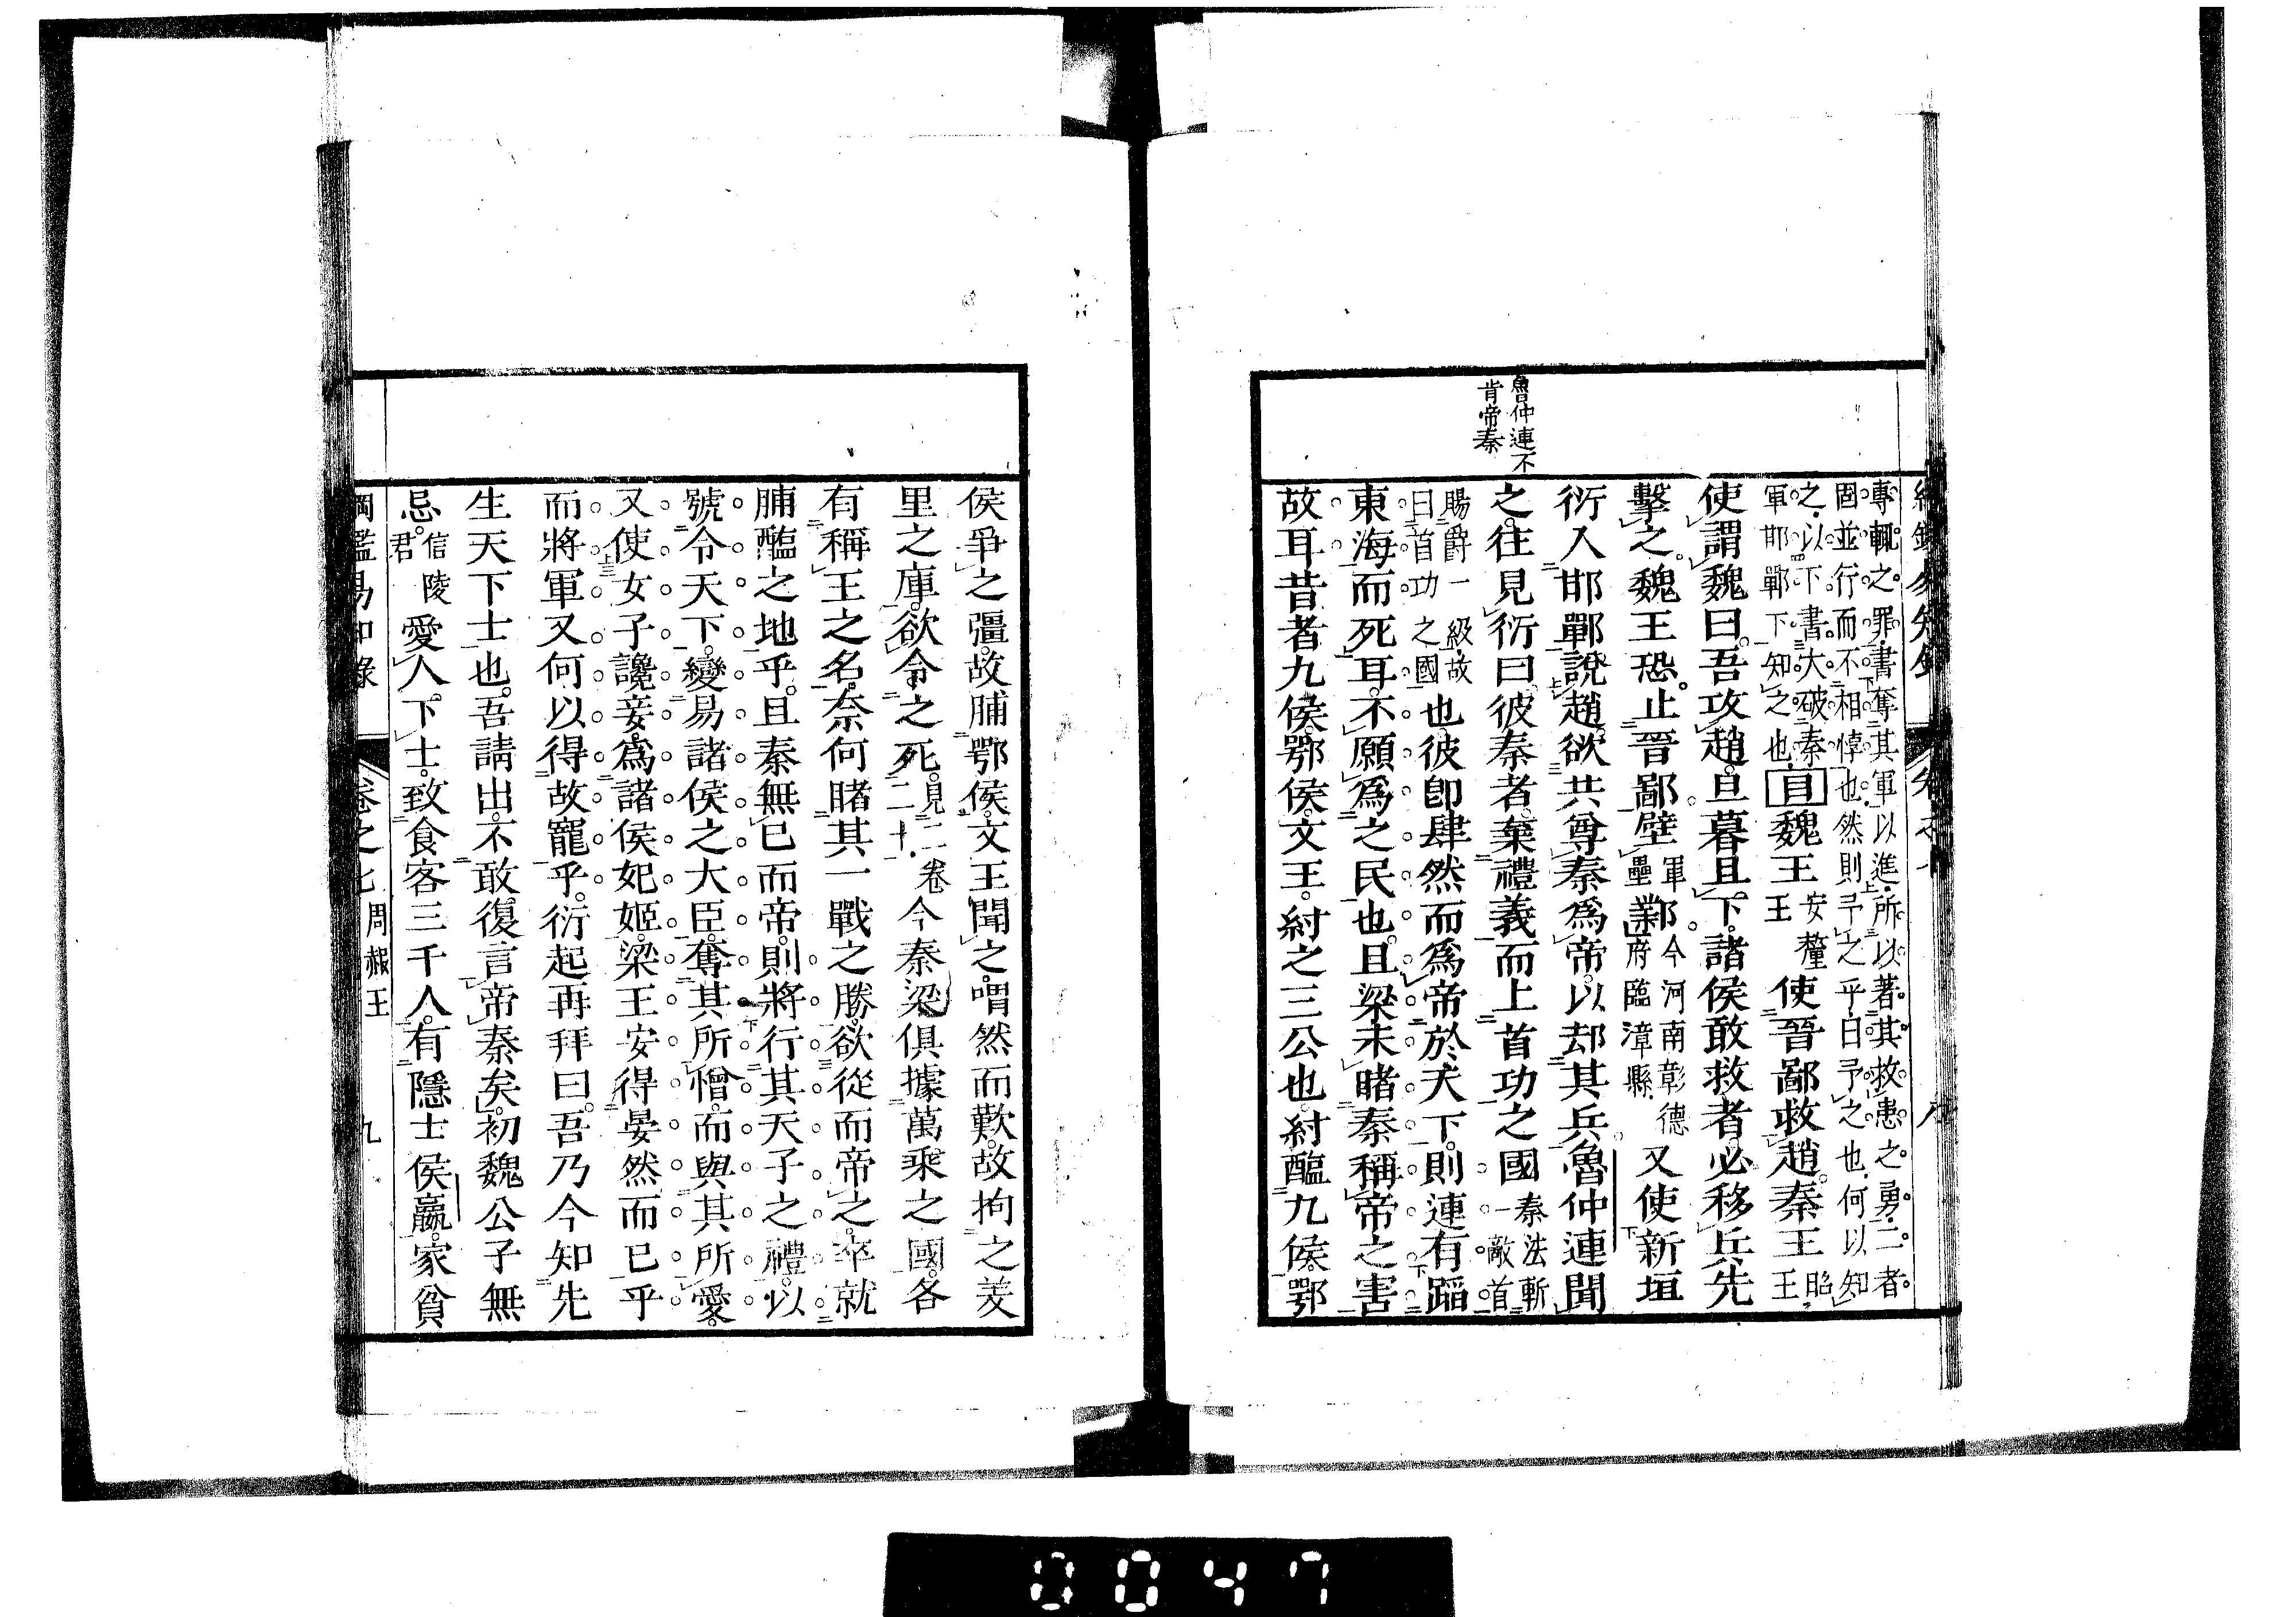 魯仲連不
肯帝秦
專輒之罪書奪其軍以進所以著其救患之勇二者
固並行而不相悖也然則予之乎曰予之也何以知
之以下書大破秦
軍邯鄲下知之也目魏王安釐王使晉鄙救趙秦王昭王
使謂魏曰吾攻趙旦暮且下諸侯敢救者必移兵先
擊之魏王恐止晉鄙壁軍壘鄴今河南彰德府臨漳縣又使新垣
衍入邯鄲說趙欲共尊秦爲帝以却其兵魯仲連聞
之往見衍曰彼秦者棄禮義而上首功之國秦法斬一敵首
賜爵一級故曰首功之國也彼卽肆然而爲帝於天下則連有蹈
東海而死耳不願爲之民也且梁未睹秦稱帝之害
故耳昔者九侯鄂侯文王紂之三公也紂醢九侯鄂
侯爭之彊故脯鄂侯文王聞之喟然而歎故拘之羑
里之庫欲令之死見二卷二十今秦梁俱據萬乘之國各
有稱王之名奈何睹其一戰之勝欲從而帝之卒就
脯醢之地乎且秦無已而帝則將行其天子之禮以
號令天下變易諸侯之大臣奪其所憎而與其所愛
又使女子讒妾爲諸侯妃姬梁王安得晏然而已乎
而將軍又何以得故寵乎衍起再拜曰吾乃今知先
生天下士也吾請出不敢復言帝秦矣初魏公子無
忌信陵君愛人下士致食客三千人有隱士侯嬴家貧
綱鑑易知錄 卷之七 周赧王 九
0047